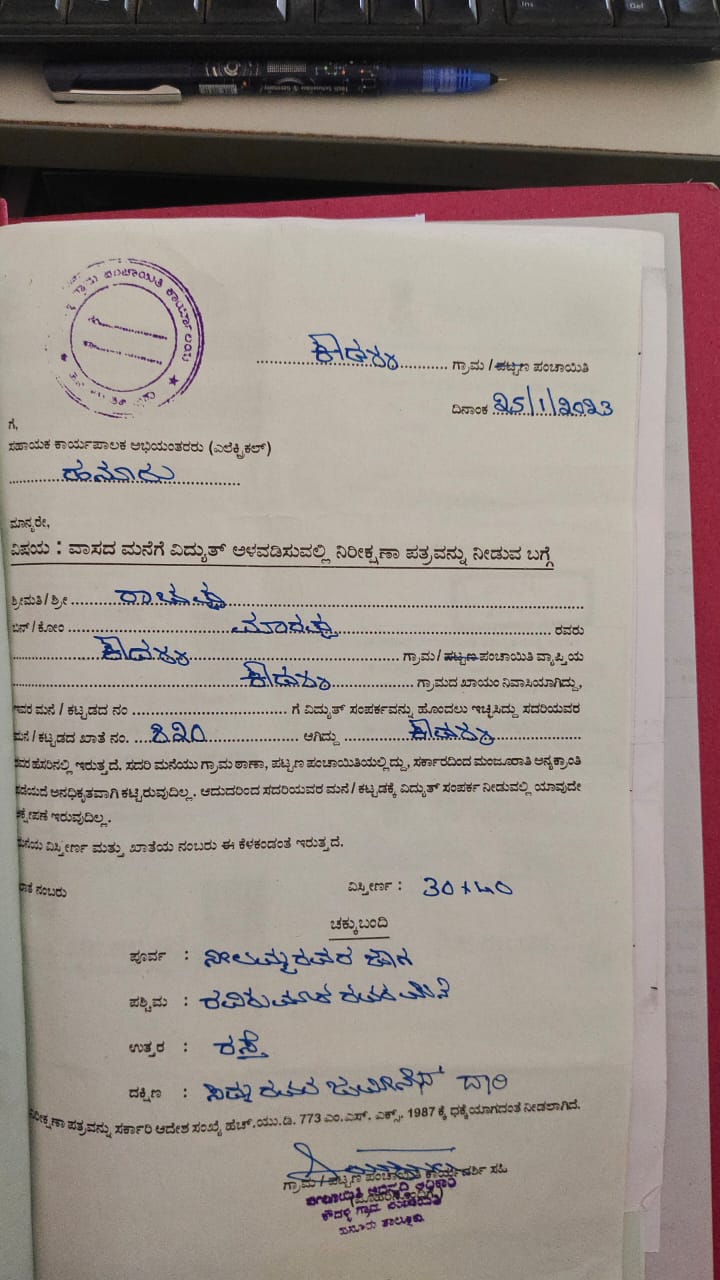 ಗ್ರಾಮ ಪಂಚಾಯಿತಿ ಕಾರ್ಯಾಲಯ
ಕೌದಳ್ಳಿ ಗ್ರಾಮ / ಪಟ್ಟಣ ಪಂಚಾಯಿತಿ
ದಿನಾಂಕ 25/1/2023
ಗೆ,
ಸಹಾಯಕ ಕಾರ್ಯಪಾಲಕ ಅಭಿಯಂತರರು (ಎಲೆಕ್ಟ್ರಿಕಲ್)
ಹನೂರು
ಮಾನ್ಯರೇ,
ವಿಷಯ : ವಾಸದ ಮನೆಗೆ ವಿದ್ಯುತ್ ಅಳವಡಿಸುವಲ್ಲಿ ನಿರೀಕ್ಷಣಾ ಪತ್ರವನ್ನು ನೀಡುವ ಬಗ್ಗೆ
ಶ್ರೀಮತಿ / ಶ್ರೀ ರಾಚಪ್ಪ
ಬಿನ್ / ಕೋಂ ಮಾದಪ್ಪ ರವರು
ಕೌದಳ್ಳಿ ಗ್ರಾಮ / ಪಟ್ಟಣ ಪಂಚಾಯಿತಿ ವ್ಯಾಪ್ತಿಯ
ಕೌದಳ್ಳಿ ಗ್ರಾಮದ ಖಾಯಂ ನಿವಾಸಿಯಾಗಿದ್ದು,
ಇವರ ಮನೆ / ಕಟ್ಟಡದ ನಂ ಗೆ ವಿದ್ಯುತ್ ಸಂಪರ್ಕವನ್ನು ಹೊಂದಲು ಇಚ್ಛಿಸಿದ್ದು ಸದರಿಯವರ
ಮನೆ / ಕಟ್ಟಡದ ಖಾತೆ ನಂ. ಆಗಿದ್ದು ಕೌದಳ್ಳಿ
ರವರ ಹೆಸರಿನಲ್ಲಿ ಇರುತ್ತದೆ. ಸದರಿ ಮನೆಯು ಗ್ರಾಮ ಠಾಣಾ, ಪಟ್ಟಣ ಪಂಚಾಯಿತಿಯಲ್ಲಿದ್ದು, ಸರ್ಕಾರದಿಂದ ಮಂಜೂರಾತಿ ಅನ್ಯಕ್ರಾಂತಿ
ಪಡೆಯದೆ ಅನಧಿಕೃತವಾಗಿ ಕಟ್ಟಿರುವುದಿಲ್ಲ. ಆದುದರಿಂದ ಸದರಿಯವರ ಮನೆ / ಕಟ್ಟಡಕ್ಕೆ ವಿದ್ಯುತ್ ಸಂಪರ್ಕ ನೀಡುವಲ್ಲಿ ಯಾವುದೇ
ಆಕ್ಷೇಪಣೆ ಇರುವುದಿಲ್ಲ.
ಮನೆಯ ವಿಸ್ತೀರ್ಣ ಮತ್ತು ಖಾತೆಯ ನಂಬರು ಈ ಕೆಳಕಂಡಂತೆ ಇರುತ್ತದೆ.
ಖಾತೆ ನಂಬರು ವಿಸ್ತೀರ್ಣ : 30 x 40
ಚಕ್ಕುಬಂದಿ
ಪೂರ್ವ : ನೀಲಮ್ಮ ರವರ ಜಾಗ
ಪಶ್ಚಿಮ : ರವಿಕುಮಾರ ರವರ ಮನೆ
ಉತ್ತರ : ರಸ್ತೆ
ದಕ್ಷಿಣ : ಸಿದ್ದು ರವರ ದಾರಿ
ನಿರೀಕ್ಷಣಾ ಪತ್ರವನ್ನು ಸರ್ಕಾರಿ ಆದೇಶ ಸಂಖ್ಯೆ ಹೆಚ್.ಯು.ಡಿ. 773 ಎಂ.ಎಸ್. ಎಕ್ಸ್. 1987 ಕ್ಕೆ ಧಕ್ಕೆಯಾಗದಂತೆ ನೀಡಲಾಗಿದೆ.
ಗ್ರಾಮ / ಪಟ್ಟಣ ಪಂಚಾಯಿತಿ ಕಾರ್ಯದರ್ಶಿ ಸಹಿ
ಪಂಚಾಯಿತಿ ಅಭಿವೃದ್ಧಿ ಅಧಿಕಾರಿ
ಕೌದಳ್ಳಿ ಗ್ರಾಮ ಪಂಚಾಯಿತಿ
ಹನೂರು ತಾಲ್ಲೂಕು